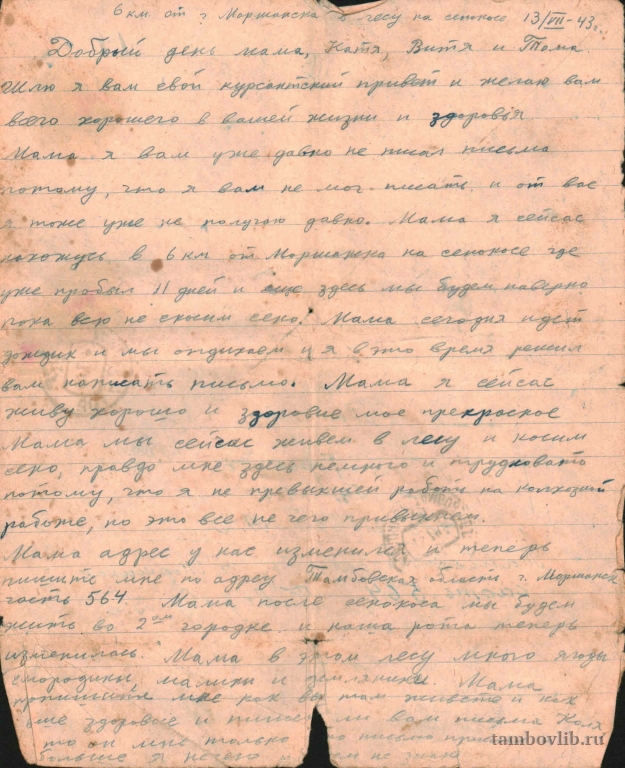 6 км. от г. Моршанска в лесу на сенокосе 13/VII-43г.
Добрый день мама, Катя, Витя и Тома.
Шлю я вам свой курсантский привет и желаю вам
всего хорошего в вашей жизни и здоровья
Мама я вам уже давно не писал письмо
потому, что я вам не мог писать и от вас
я тоже уже не получаю давно. Мама я сейсас
нахожусь в 6 км от Моршанска на сенокосе где
уже пробыл 11 дней и еще здесь мы будем наверно
пока всю не скосим сено. Мама сегодня идет
дождик и мы отдыхаем и я в это время решил
вам написать письмо. Мама я сейсас
живу хорошо и здоровие мое прекрасное
Мама мы сейсас живем в лесу и косим
сено, правдо мне здесь немного и трудновато
потому, что я не превыкшей работь на колхозной
работе, но это все не чего привыкнем.
Мама адрес у нас изменился и теперь
пишите мне по адресу Тамбовская области г. Моршанск
часть 564 Мама после сенокоса мы будем
жить во 2ом городке и наша рота теперь
изменилась. Мама в этом лесу много ягоды
смородики, малики и земляники. Мама
мне как вы там живете и как
ше здоровое и пишет ли вам письма Коля
то он мне только письмо
больше я нечего не знаю
tambovlib.ru